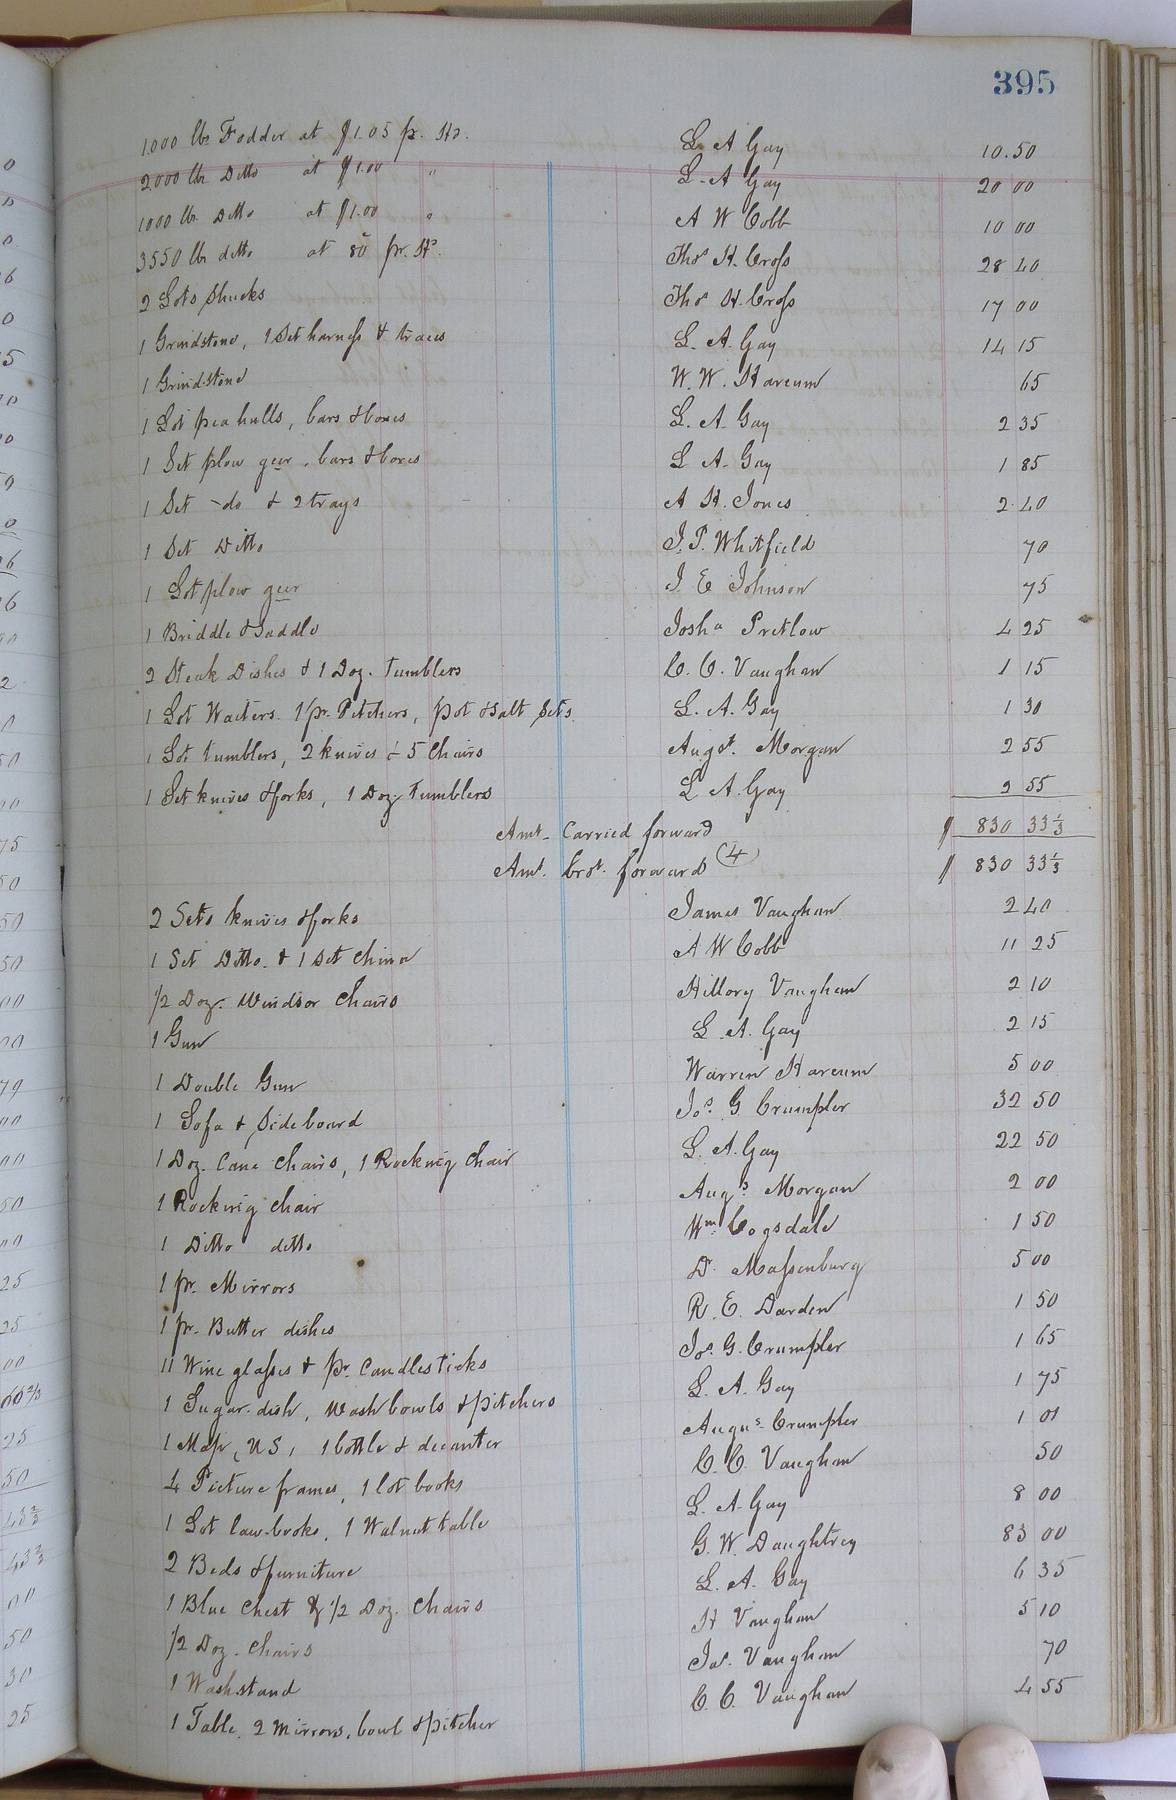 395
1000 lbs Fodder at $1.05 pr. Hd. L. A Gay 10.50
2000 lbs Ditto at $1.00 " L. A Gay 20 00
1000 lb. Ditto at $1.00 " A W Cobb 10 00
3550 lb ditto at 80c pr. Hd. Thos H. Cross 28 40
2 Lots Shucks Thos H. Cross 17 00
1 Grindstone, 1 Set harness & traces L. A. Gay 14 15
1 Grindstone W. W. Harcum 65
1 Lot pea hulls, bars & boxes L. A. Gay 2 35
1 Set plow geer, bars & boxes L A. Gay 1 85
1 Set -do & 2 trays A H. Jones 2.40
1 Set Ditto J. P. Whitfield 70
1 Lot plow geer J. E Johnson 75
1 Briddle & Saddle Josha Pretlow 4 25
2 Steak Dishes & 1 Doz. Tumblers C. C. Vaughan 1 15
1 Lot Waiters. 1 pr. Pitchers, pot & Salt Sets L. A. Gay 1 30
1 Lot tumblers, 2 knives & 5 Chairs Augst. Morgan 2 55
1 Set knives & forks, 1 Doz Tumblers L A. Gay 2 55
Amt. Carried forward $ 830 33 1/3
Amt. brot. forward (4) $ 830 33 1/3
2 Sets knives & forks James Vaughan 2 40
1 Set Ditto. & 1 set China A W Cobb 11 25
1/2 Doz. Windsor Chairs Hillory Vaughan 2 10
1 Gun L. A. Gay 2 15
1 Double Gun Warren Harcum 5 00
1 Sofa & Sideboard Jos. G Crumpler 32 50
1 Doz. Cane Chairs, 1 Rocking Chair L. A. Gay 22 50
1 Rocking chair Augs. Morgan 2 00
1 Ditto ditto Wm. Cogsdale 1 50
1 pr. Mirrors D. Massenburg 5 00
1 pr. Butter dishes R. E. Darden 1 50
11 Wine glasses & pr. Candlesticks Jos. G. Crumpler 1 65
1 Sugar dish, wash bowls & pitchers L. A. Gay 1 75
1 Map, U S, 1 bottle & decanter Augus. Crumpler 1 01
4 Picture frames, 1 lot books C. C. Vaughan 50
1 Lot law-books, 1 Walnut table L. A. Gay 8 00
2 Beds & furniture G. W. Daughtrey 83 00
1 Blue chest & 1/2 Doz. Chairs L. A. Gay 6 35
1/2 Doz. Chairs H Vaughan 5 10
1 Washstand Jas. Vaughan 70
1 Table, 2 mirrors, bowl & pitcher C. C. Vaughan 4 55